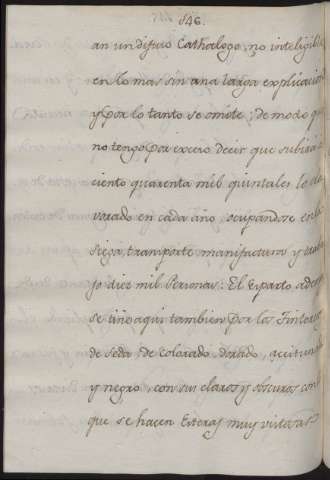 846.
an un difuso Cathalogo, no inteligible
en lo mas sin una larga explicacion
y por lo tanto se omite; de modo q
no tengo por exceso decir que subirá á
ciento quarenta mil quintales lo de
vorado en cada año, ocupandose en la
Siega, transporte, manifacturas y traba
jo diez mil Personas: El Esparto adem
se tiñe aqui tambien por los Tintoreros
de Seda, de colorado, dorado, aceitunado
y negro, con sus claros y obscuros con
que se hacen Esteras muy vistosas